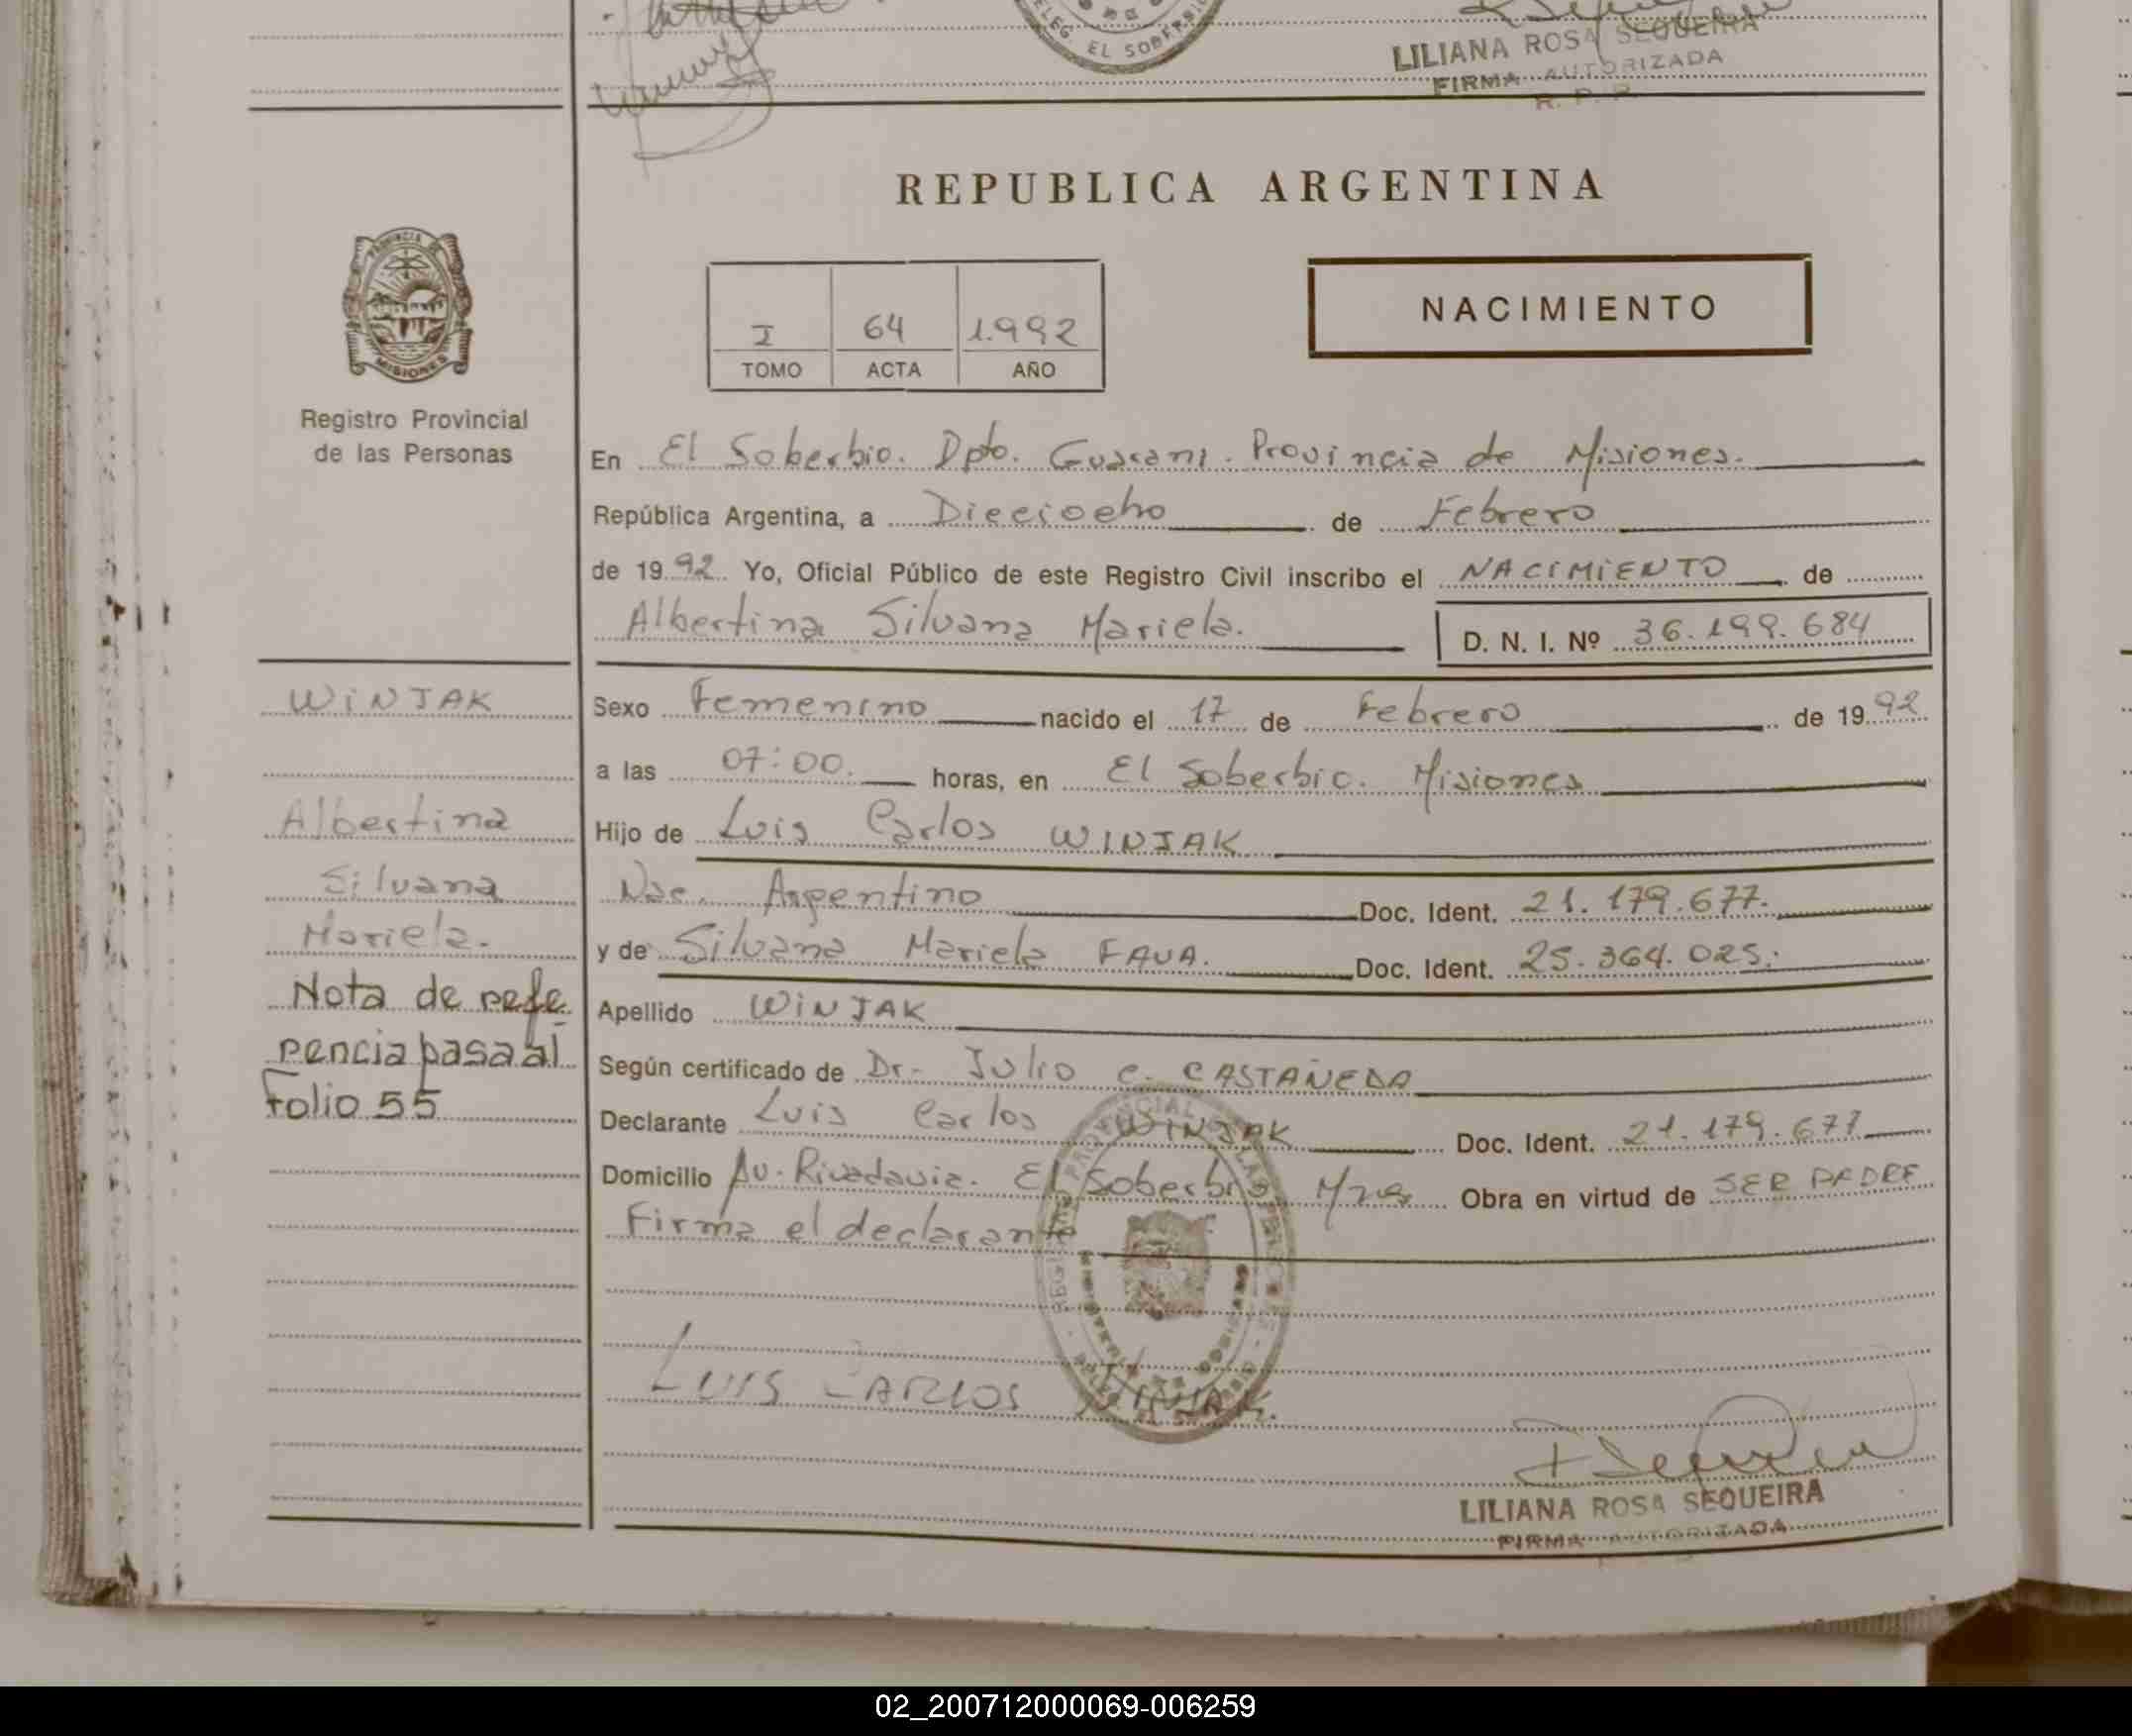 DELEG. EL SOBERBIO
LILIANA ROSA SEQUEIRA
FIRMA AUTORIZADA
R. P. P.
REPUBLICA ARGENTINA
PROVINCIA DE
MISIONES
Registro Provincial
de las Personas
I 64 1.992
TOMO ACTA AÑO
NACIMIENTO
En El Soberbio. Dpto. Guarani. Provincia de Misiones.
República Argentina, a Dieciocho de Febrero
de 1992 Yo, Oficial Público de este Registro Civil inscribo el NACIMIENTO de
Albertina Silvana Mariela.
D. N. I. Nº 36.199.684
WINJAK
Albertina
Silvana
Mariela.
Nota de refe
rencia pasa al
Folio 55
Sexo Femenino nacido el 17 de Febrero de 1992
a las 07:00. horas, en El Soberbio. Misiones
Hijo de Luis Carlos WINJAK
Nac. Argentino Doc. Ident. 21.179.677.
y de Silvana Mariela FAVA. Doc. Ident. 25.364.025.
Apellido WINJAK
Según certificado de Dr. Julio C. CASTAÑEDA
Declarante Luis Carlos WINJAK Doc. Ident. 21.179.677
Domicilio Av. Rivadavia. El Soberbio Mnes. Obra en virtud de SER PADRE
Firma el declarante
LUIS CARLOS WINJAK.
LILIANA ROSA SEQUEIRA
FIRMA AUTORIZADA
02_200712000069-006259